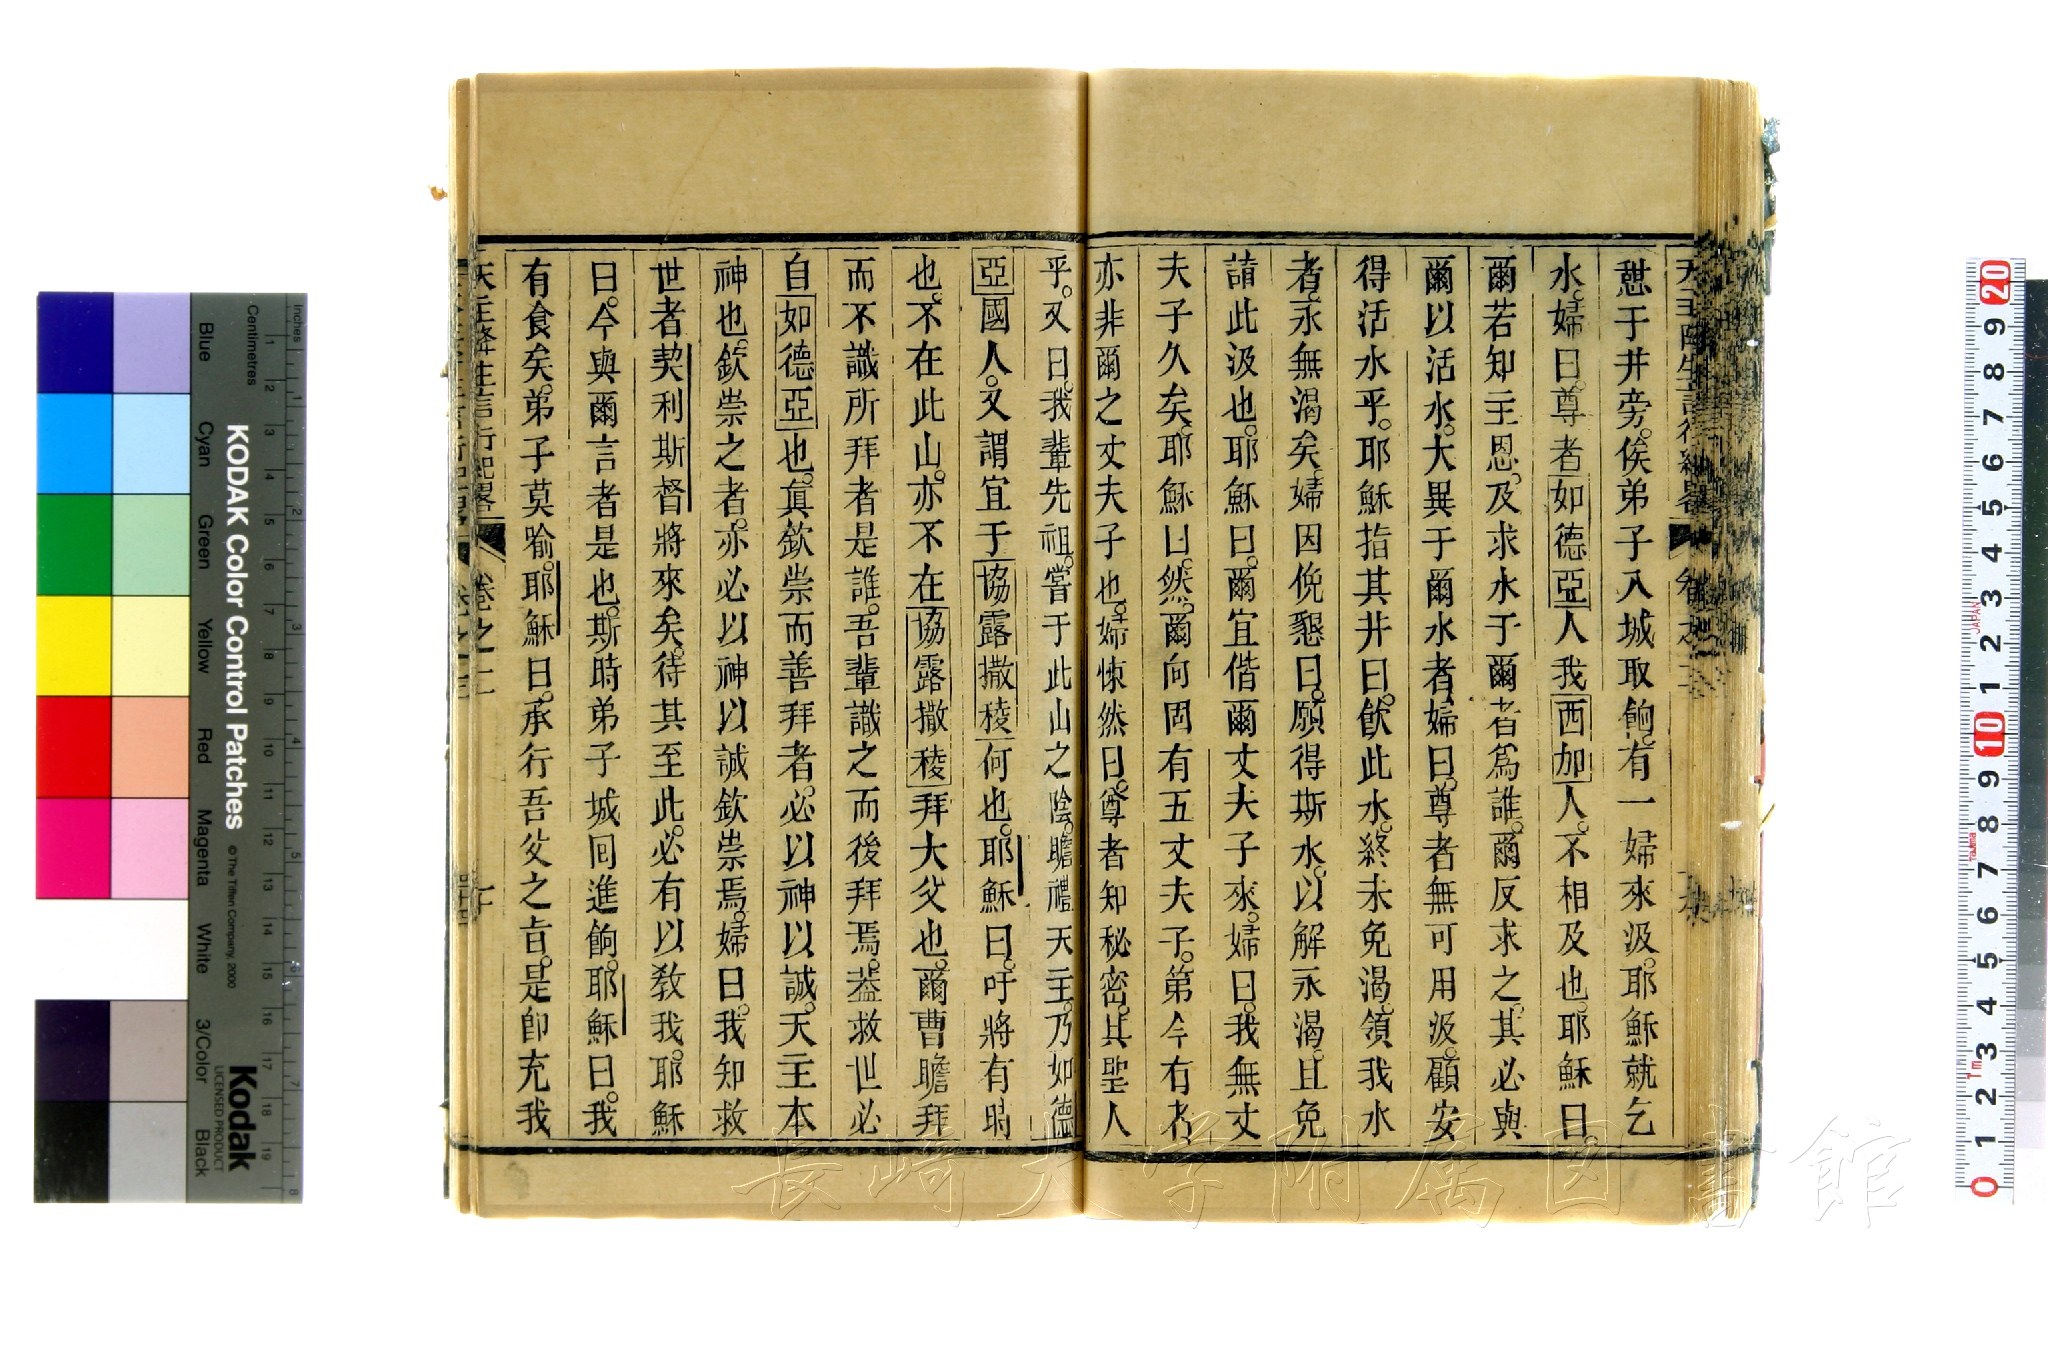 憇于井旁。俟弟子入城取餉。有一婦來汲。耶穌就乞
水。婦曰。尊者如德亞人我西加人。不相及也。耶穌曰。
爾若知主恩。及求水于爾者爲誰。爾反求之。其必與
爾以活水。大異于爾水者。婦曰。尊者無可用汲。顧安
得活水乎。耶穌指其井曰。飲此水。終未免渴。領我水
者。永無渴矣。婦因俛懇曰。願得斯水。以解永渴。且免
請此汲也。耶穌曰。爾宜偕爾丈夫子來。婦曰。我無丈
夫子久矣。耶穌曰。然。爾向固有五丈夫子。第今有者。
亦非爾之丈夫子也。婦悚然曰。尊者知秘密。其聖人
乎。又曰。我輩先祖。嘗于此山之陰。瞻禮天主。乃如德
亞國人。又謂宜于協露撒稜何也。耶穌曰。吁將有時
也。不在此山。亦不在協露撒稜拜大父也。爾曹瞻拜
而不識所拜者是誰。吾輩識之而後拜焉。葢救世必
自如德亞也。眞欽崇而善拜者。必以神以誠。天主本
神也。欽崇之者。亦必以神以誠欽崇焉。婦曰。我知救
世者契利斯督將來矣。待其至此。必有以敎我。耶穌
曰。今與爾言者是也。斯時弟子城回進餉。耶穌曰。我
有食矣。弟子莫喻。耶穌曰。承行吾父之旨。是卽充我
天主降生言行紀畧
卷之二
KODAK Color Control Patches
© The Tiffen Company, 2000
Kodak
LICENSED PRODUCT
Inches
Centimetres
Blue
Cyan
Green
Yellow
Red
Magenta
White
3/Color
Black
JAPAN
Tajima
長崎大学附属図書館